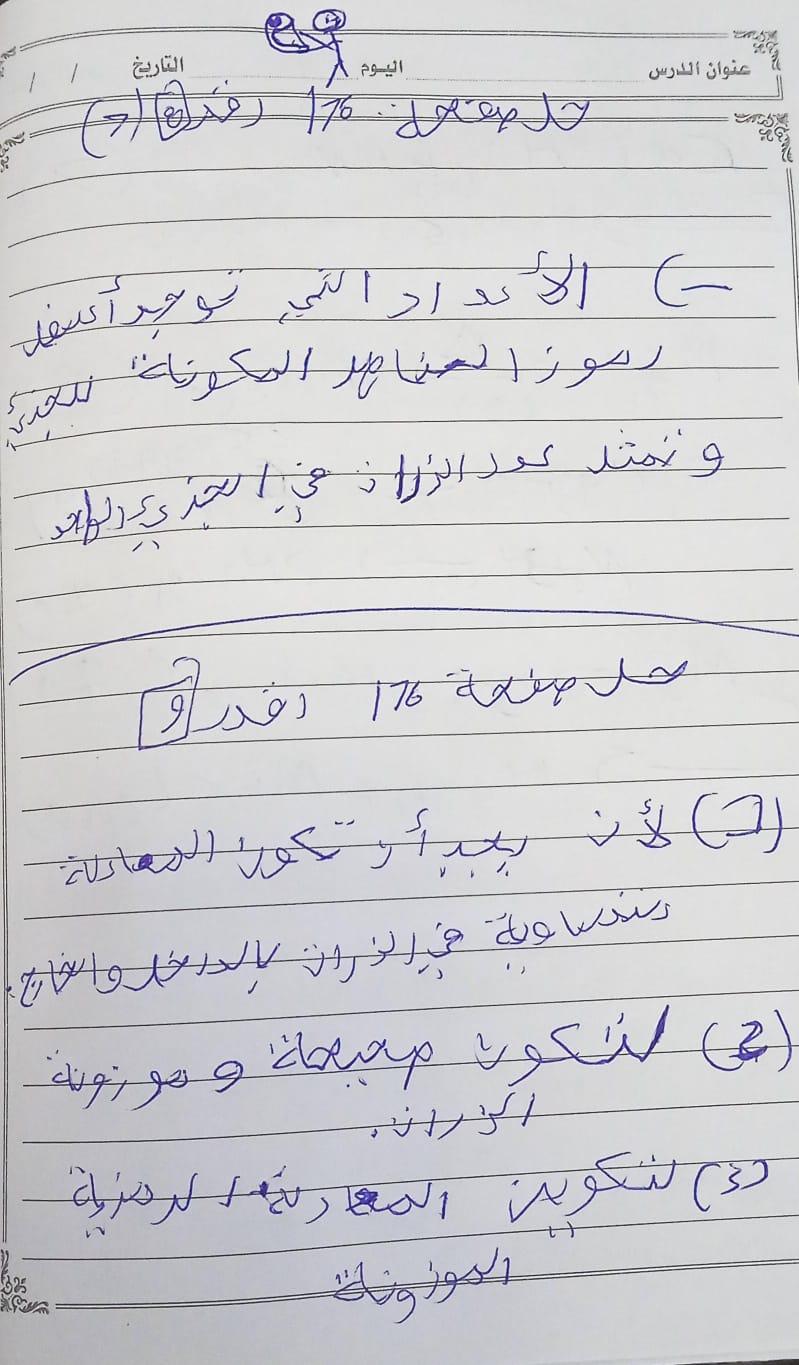 عنوان الدرس اليوم التاريخ / /
حل صفحة 176 فقرة هـ (ح)
(- الأعداد التي توجد أسفل
رموز العناصر المكونة للجزيء
و تمثل عدد الذرات في الجزيء الواحد
حل صفحة 176 فقرة و
(1) لأن يجب أن تكون المعادلة
متساوية في الذرات بالداخل والخارج.
(2) لتكون صحيحة و موزونة
الذرات.
(3) لتكوين المعادلة الرمزية
الموزونة